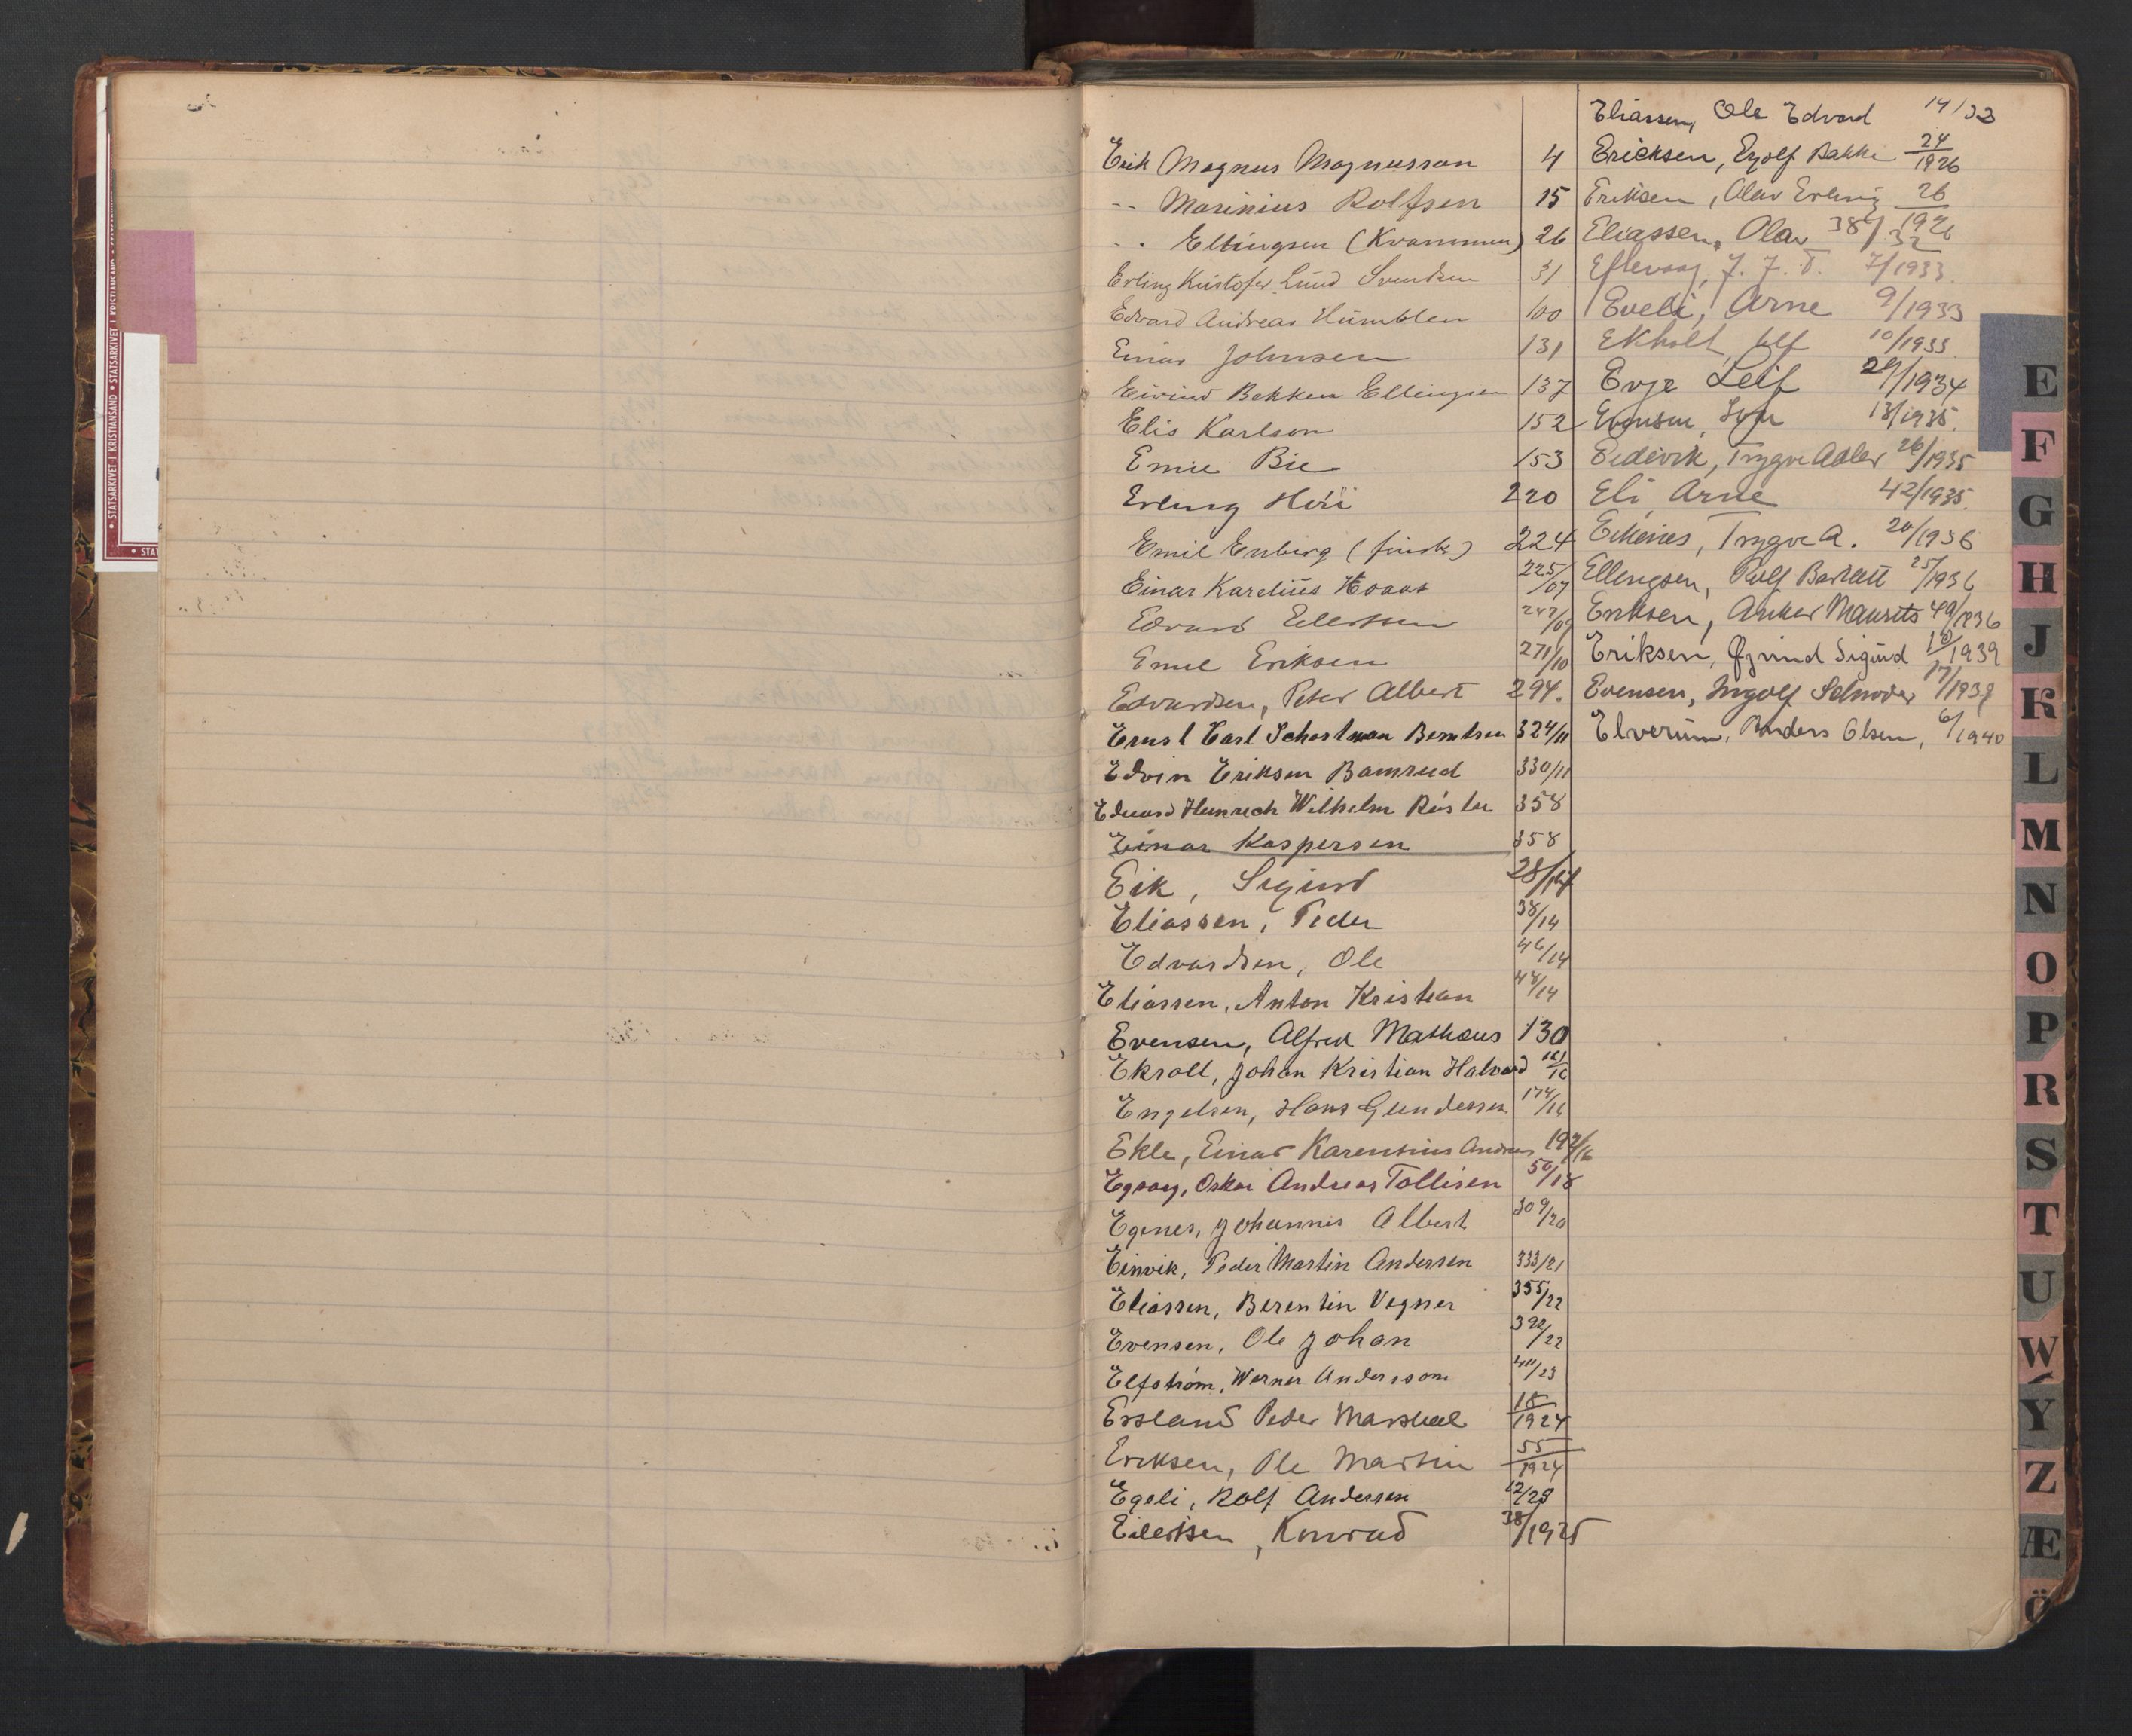 Erik Magnus Magnusson 4
-- Marinius Rolfsen 15
-- Ellingsen (Kvammen) 26
Erling Kristofer Lund Svendsen 31
Edvard Andreas Humblen 100
Einar Johnsen 131
Eivind Bekken Ellingsen 137
Elis Karlson 152
Emil Bie 153
Erling Höie 220
Emil Enberg (finsk) 224
Einar Karelius Hovas 225/07
Edvard Eilertsen 247/09
Emil Eriksen 271/10
Edvardsen, Peter Albert 294.
Ernst Carl Schartman Berntsen 324/11
Edvin Eriksen Bamrud 330/11
Eduard Heinrich Wilhelm Röster 358
Einar Kaspersen 358
Eik, Sigurd 28/14
Eliassen, Peder 38/14
Edvardsen, Ole 46/14
Eliassen, Anton Kristian 48/14
Evensen, Alfred Mathæus 130
Ekroll, Johan Kristian Halvard 161/16
Engelsen, Hans Gundersen 174/16
Ekle, Einar Karensius Andreas 197/16
Egvaag, Oskar Andreas Tallisen 50/18
Egenes, Johannes Albert 309/20
Einvik, Peder Martin Andersen 333/21
Eliassen, Berentin Vegner 355/22
Evensen, Ole Johan 392/22
Elfström, Werner Andersson 411/23
Ersland Peder Marshal 18/1924
Eriksen, Ole Martin 55/1924
Egeli, Rolf Andersen 12/25
Eilertsen, Konrad 38/1925
Eliassen, Ole Edvard 14/33
Ericksen, Eyolf Bakke 24/1926
Eriksen, Olav Erling 26/1926
Eliassen, Olav 38/32
Eftevaag, J. J. T. 7/1933
Eveli, Arne 9/1933
Ekholt, Ulf 10/1933.
Evje Leif 29/1934
Evensen, 13/1935.
Eidevik, Trygve Adler 26/1935
Eli Arne 42/1935.
Eikenes, Trygve A. 20/1936
Ellingsen, Rolf Bartlett 25/1936
Eriksen, Anker Maurits 49/1936
Eriksen, Øjvind Sigurd 10/1939
Evensen, Ingolf 17/1939
Elverum, Anders Olsen, 6/1940
E
F
G
H
J
K
L
M
N
O
P
R
S
T
U
W
Y
Z
Æ
Ö
• STATSARKIVET I KRISTIANSAND • STATSARKIVET I KRISTIANSAND • STATSARKIVET
• STAT